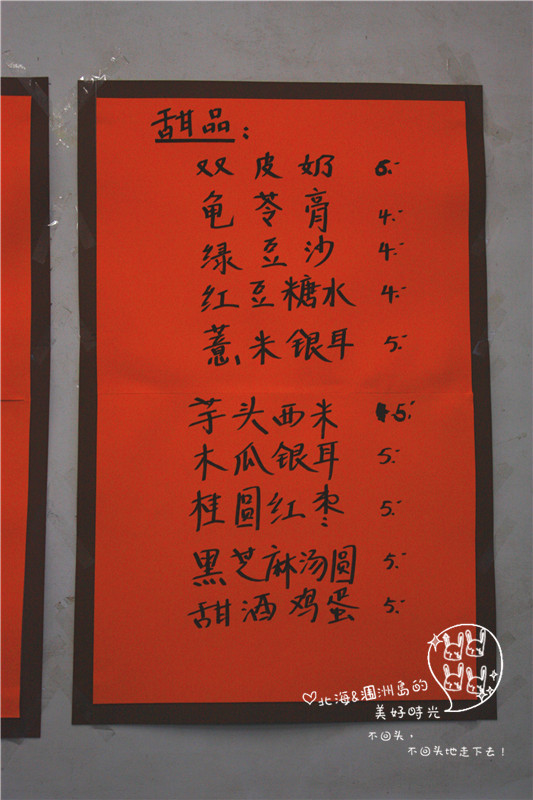 甜品：
双皮奶 6.-
龟苓膏 4.-
绿豆沙 4.-
红豆糖水 4.-
薏米银耳 5.-
芋头西米 5.-
木瓜银耳 5.-
桂圆红枣 5.-
黑芝麻汤圆 5.-
甜酒鸡蛋 5.-
♡北海&涠洲岛的
美好時光
不回头，
不回头地走下去！